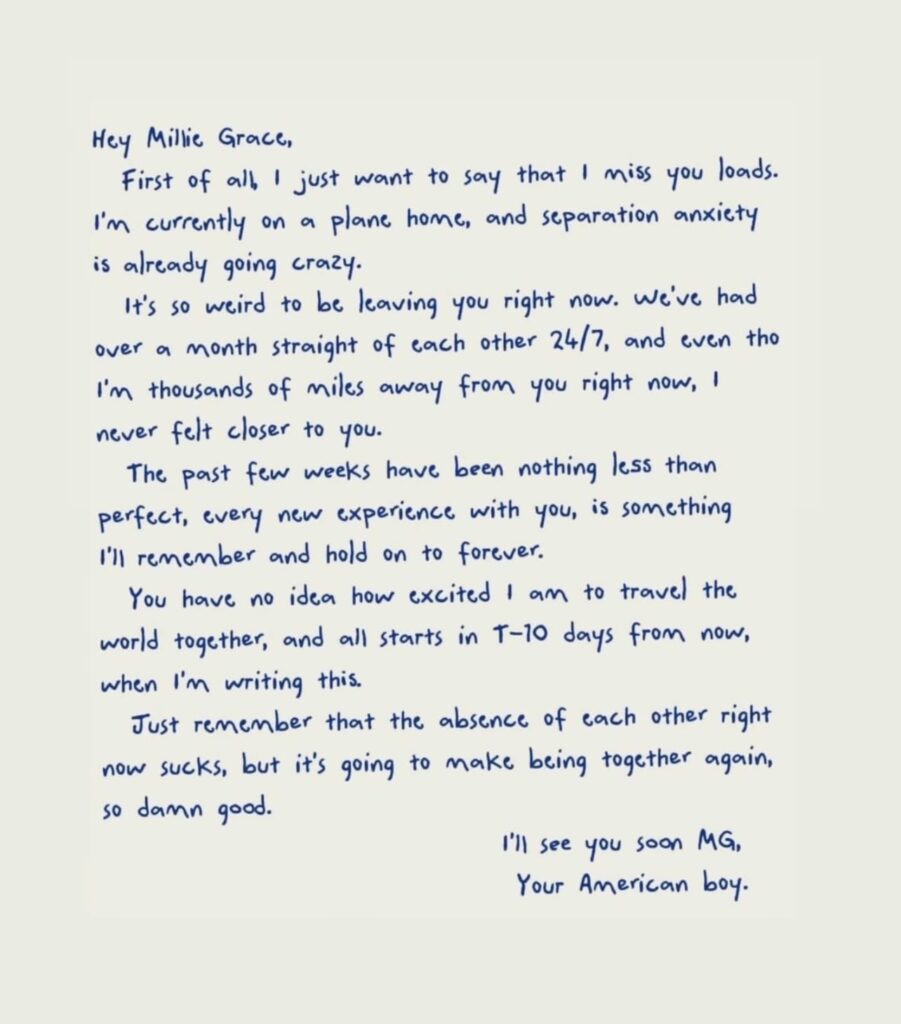 Hey Millie Grace,
First of all, I just want to say that I miss you loads.
I'm currently on a plane home, and separation anxiety
is already going crazy.
It's so weird to be leaving you right now. We've had
over a month straight of each other 24/7, and even tho
I'm thousands of miles away from you right now, I
never felt closer to you.
The past few weeks have been nothing less than
perfect, every new experience with you, is something
I'll remember and hold on to forever.
You have no idea how excited I am to travel the
world together, and all starts in T-10 days from now,
when I'm writing this.
Just remember that the absence of each other right
now sucks, but it's going to make being together again,
so damn good.
I'll see you soon MG,
Your American boy.